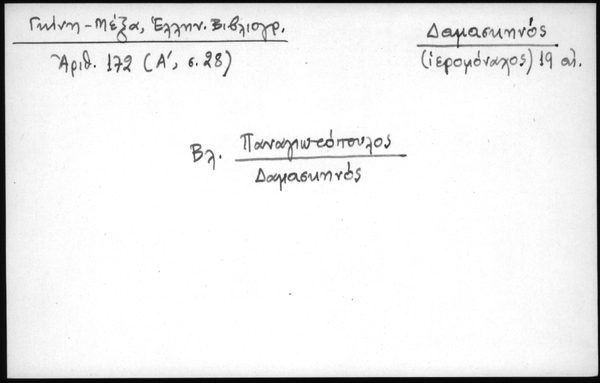 Γκίνη-Μέξα, Ἑλλην. Βιβλιογρ.
Ἀριθ. 172 (Α', σ. 28)
Δαμασκηνός
(ἱερομόναχος) 19 αἰ.
Βλ. Παναγιωτόπουλος
Δαμασκηνός